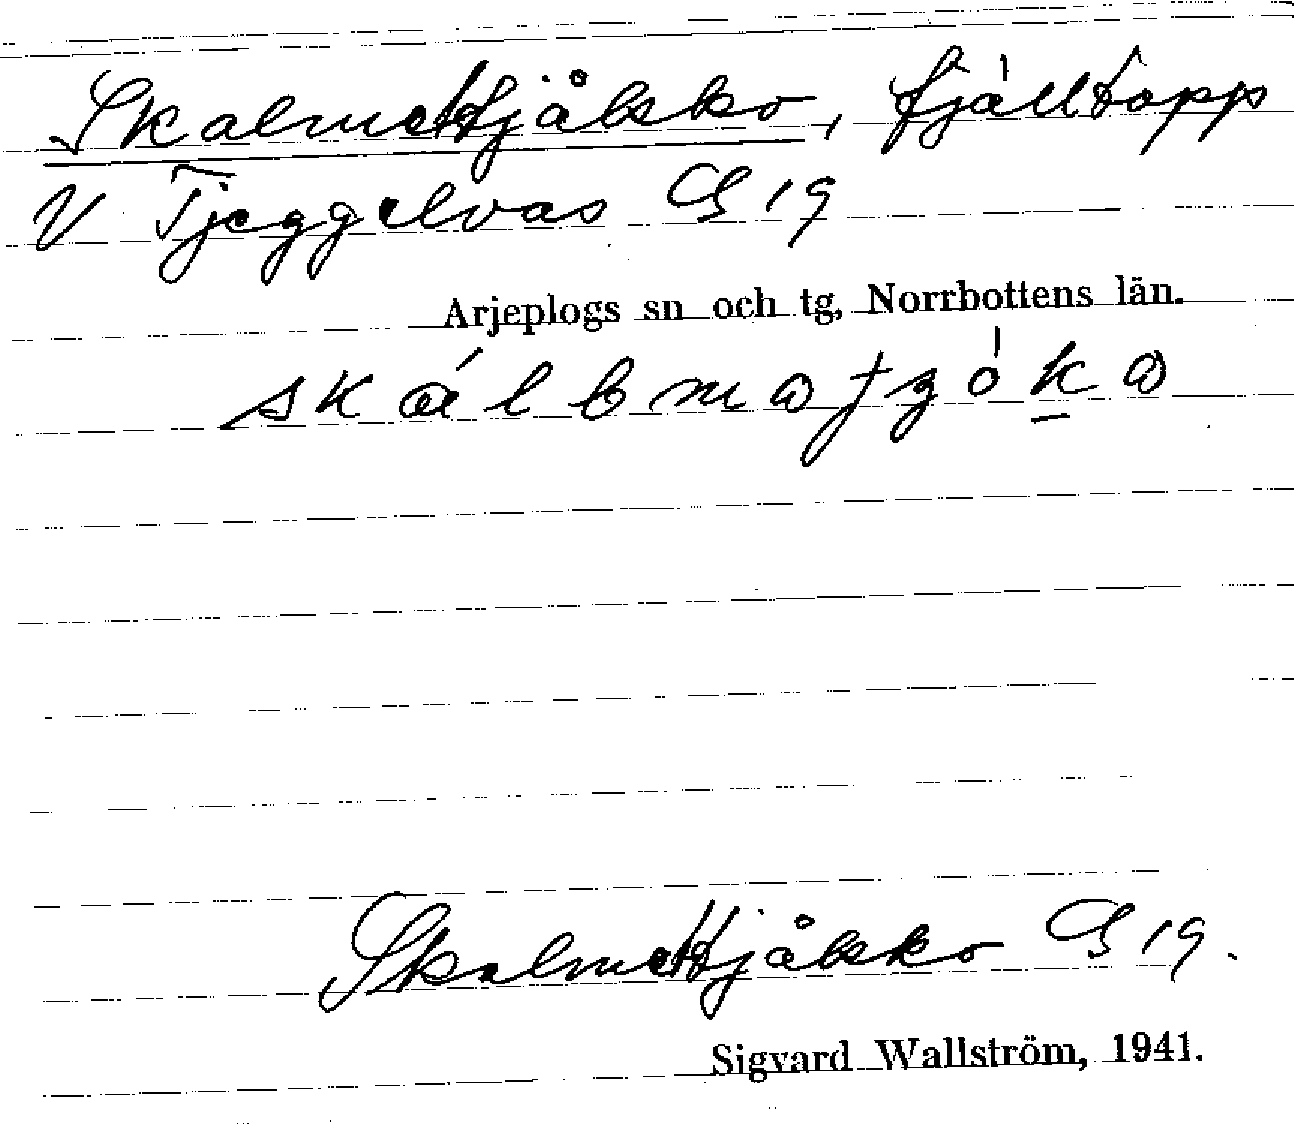 Skalmettjåkko, fjälltopp
V Tjeggelvas G 19
Arjeplogs sn och tg, Norrbottens län.
Skalmettjåkko G 19.
Sigvard Wallström, 1941.